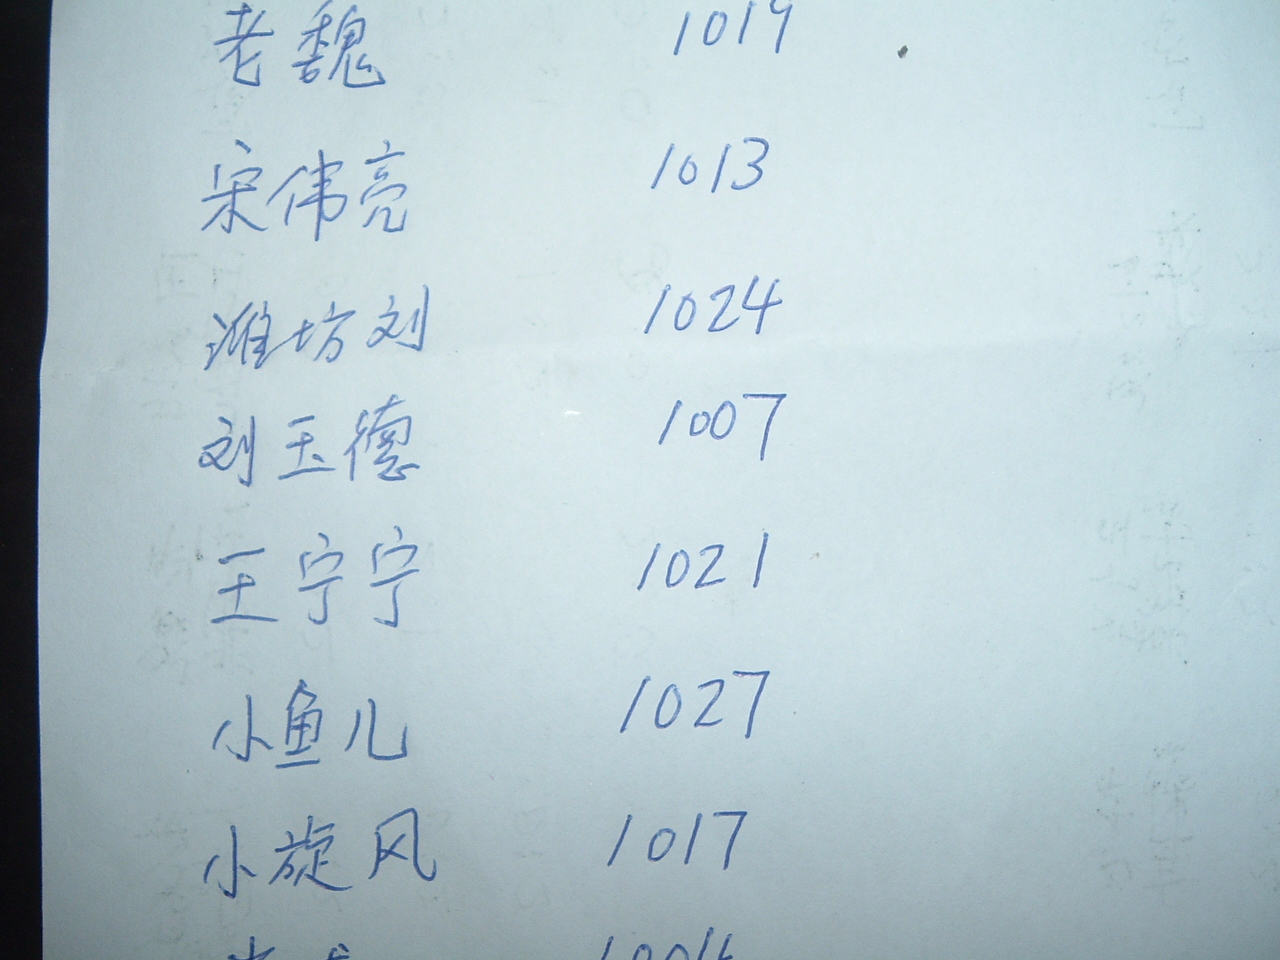 老魏 1019
宋伟亮 1013
潍坊刘 1024
刘玉德 1007
王宁宁 1021
小鱼儿 1027
小旋风 1017